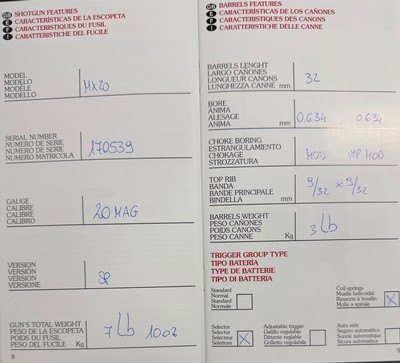 SHOTGUN FEATURES
CARACTERÍSTICAS DE LA ESCOPETA
CARACTERISTIQUES DU FUSIL
CARATTERISTICHE DEL FUCILE
MODEL
MODELO
MODÈLE
MODELLO
MX20
SERIAL NUMBER
NUMERO DE SERIE
NUMERO DE SERIE
NUMERO MATRICOLA
170539
GAUGE
CALIBRE
CALIBRE
CALIBRO
20 MAG
VERSION
VERSIÓN
VERSION
VERSIONE
SP
GUN'S TOTAL WEIGHT
PESO DE LA ESCOPETA
POIDS DU FUSIL
PESO DEL FUCILE Kg
7 lb 10oz
8
BARRELS FEATURES
CARACTERÍSTICAS DE LOS CAÑONES
CARACTERISTIQUES DES CANONS
CARATTERISTICHE DELLE CANNE
BARRELS LENGHT
LARGO CAÑONES
LONGUEUR CANONS
LUNGHEZZA CANNE mm
32
BORE
ÁNIMA
ALESAGE
ANIMA mm
0.634 0.634
CHOKE BORING
ESTRANGULAMIENTO
CHOKAGE
STROZZATURA
MOD IMP MOD
TOP RIB
BANDA
BANDE PRINCIPALE
BINDELLA mm
9/32 x 9/32
BARRELS WEIGHT
PESO CAÑONES
POIDS CANONS
PESO CANNE Kg
3 lb
TRIGGER GROUP TYPE
TIPO BATERÍA
TYPE DE BATTERIE
TIPO DI BATTERIA
Standard
Normal
Standard
Normale
Coil springs
Muelle helicoidal
Ressorts à boudins
Molle a spirale
Selector
Selector
Sélecteur
Selettivo
Adjustable trigger
Gatillo regulable
Détente réglable
Grilletto regolabile
Auto safe
Seguro automático
Sureté automatique
9